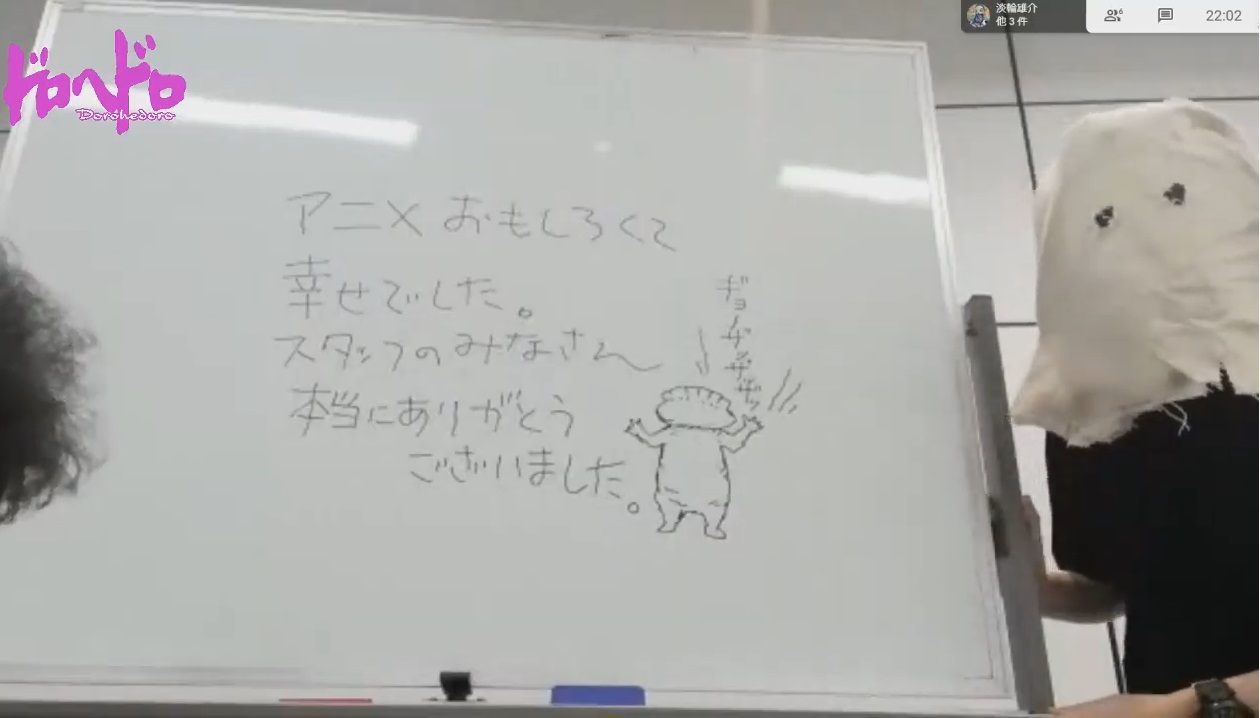 ドロヘドロ
Dorohedoro
淡輪雄介
他 3 件
6
22:02
アニメ おもしろくて
幸せでした。
スタッフの みなさん
本当にありがとう
ございました。
ギョ
ザザザ